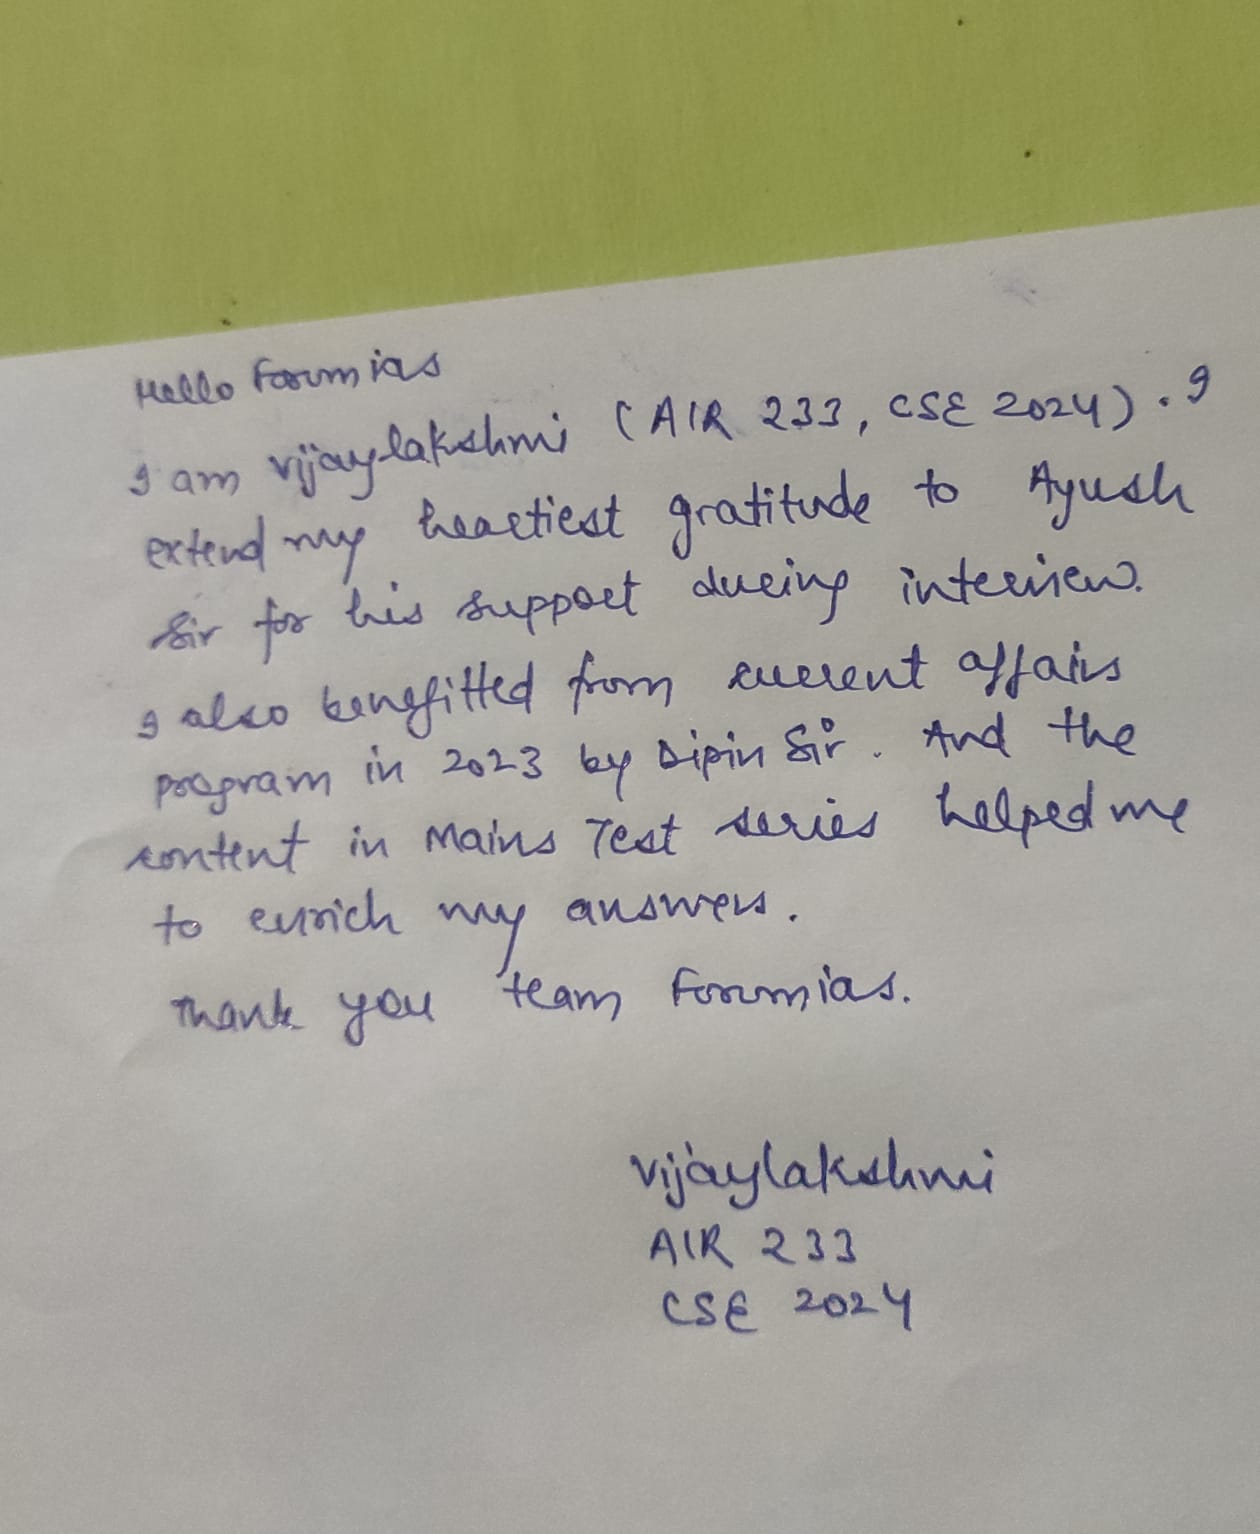 Hello Forumias
I am vijaylakshmi (AIR 233, CSE 2024). I
extend my heartiest gratitude to Ayush
Sir for his support during interview.
I also benefitted from current affairs
program in 2023 by Dipin Sir. And the
content in Mains Test series helped me
to enrich my answers.
Thank you team Forumias.
Vijaylakshmi
AIR 233
CSE 2024